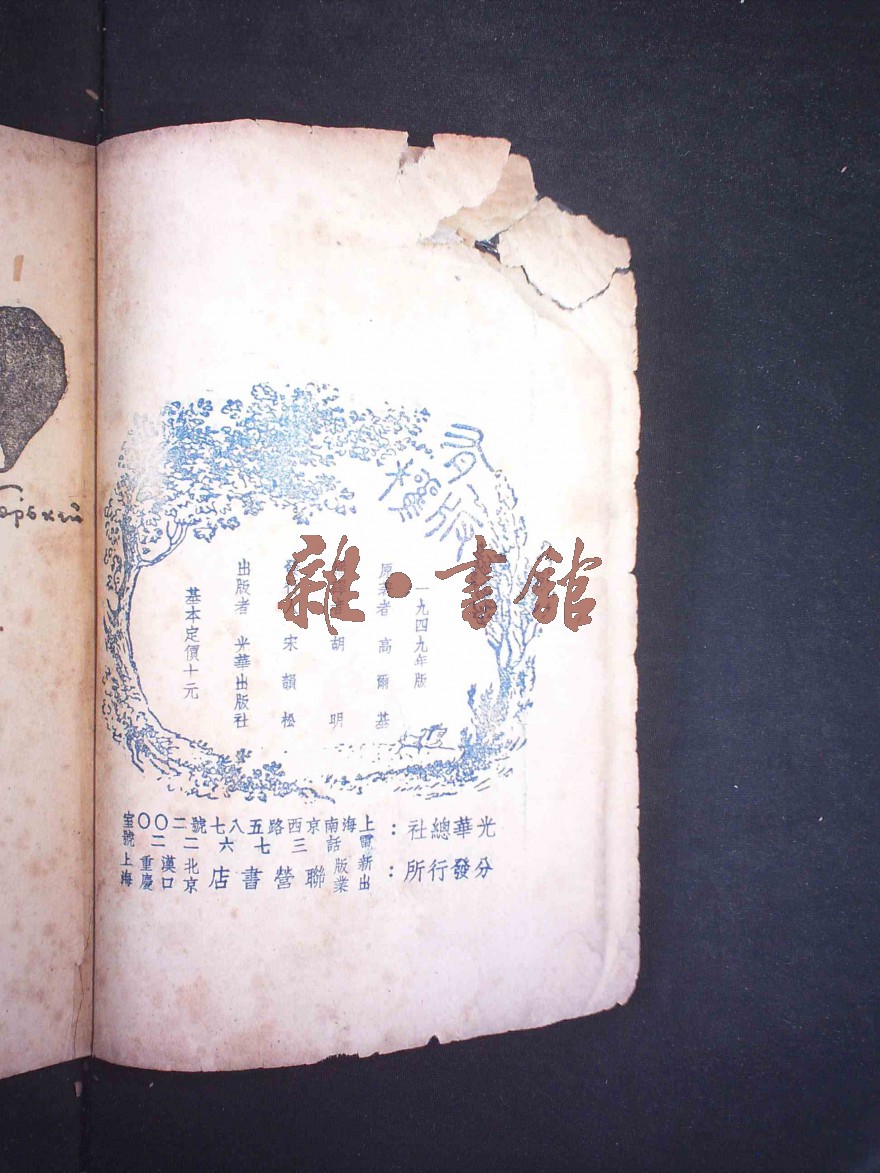 有版權
一九四九年版
原著者 高爾基
胡明
宋韻松
出版者 光華出版社
基本定價十元
光華總社：上海南京西路五八七號二〇〇室
電話三七六二二號
分發行所：新出版業聯營書店 北京 漢口 重慶 上海
雜·書館